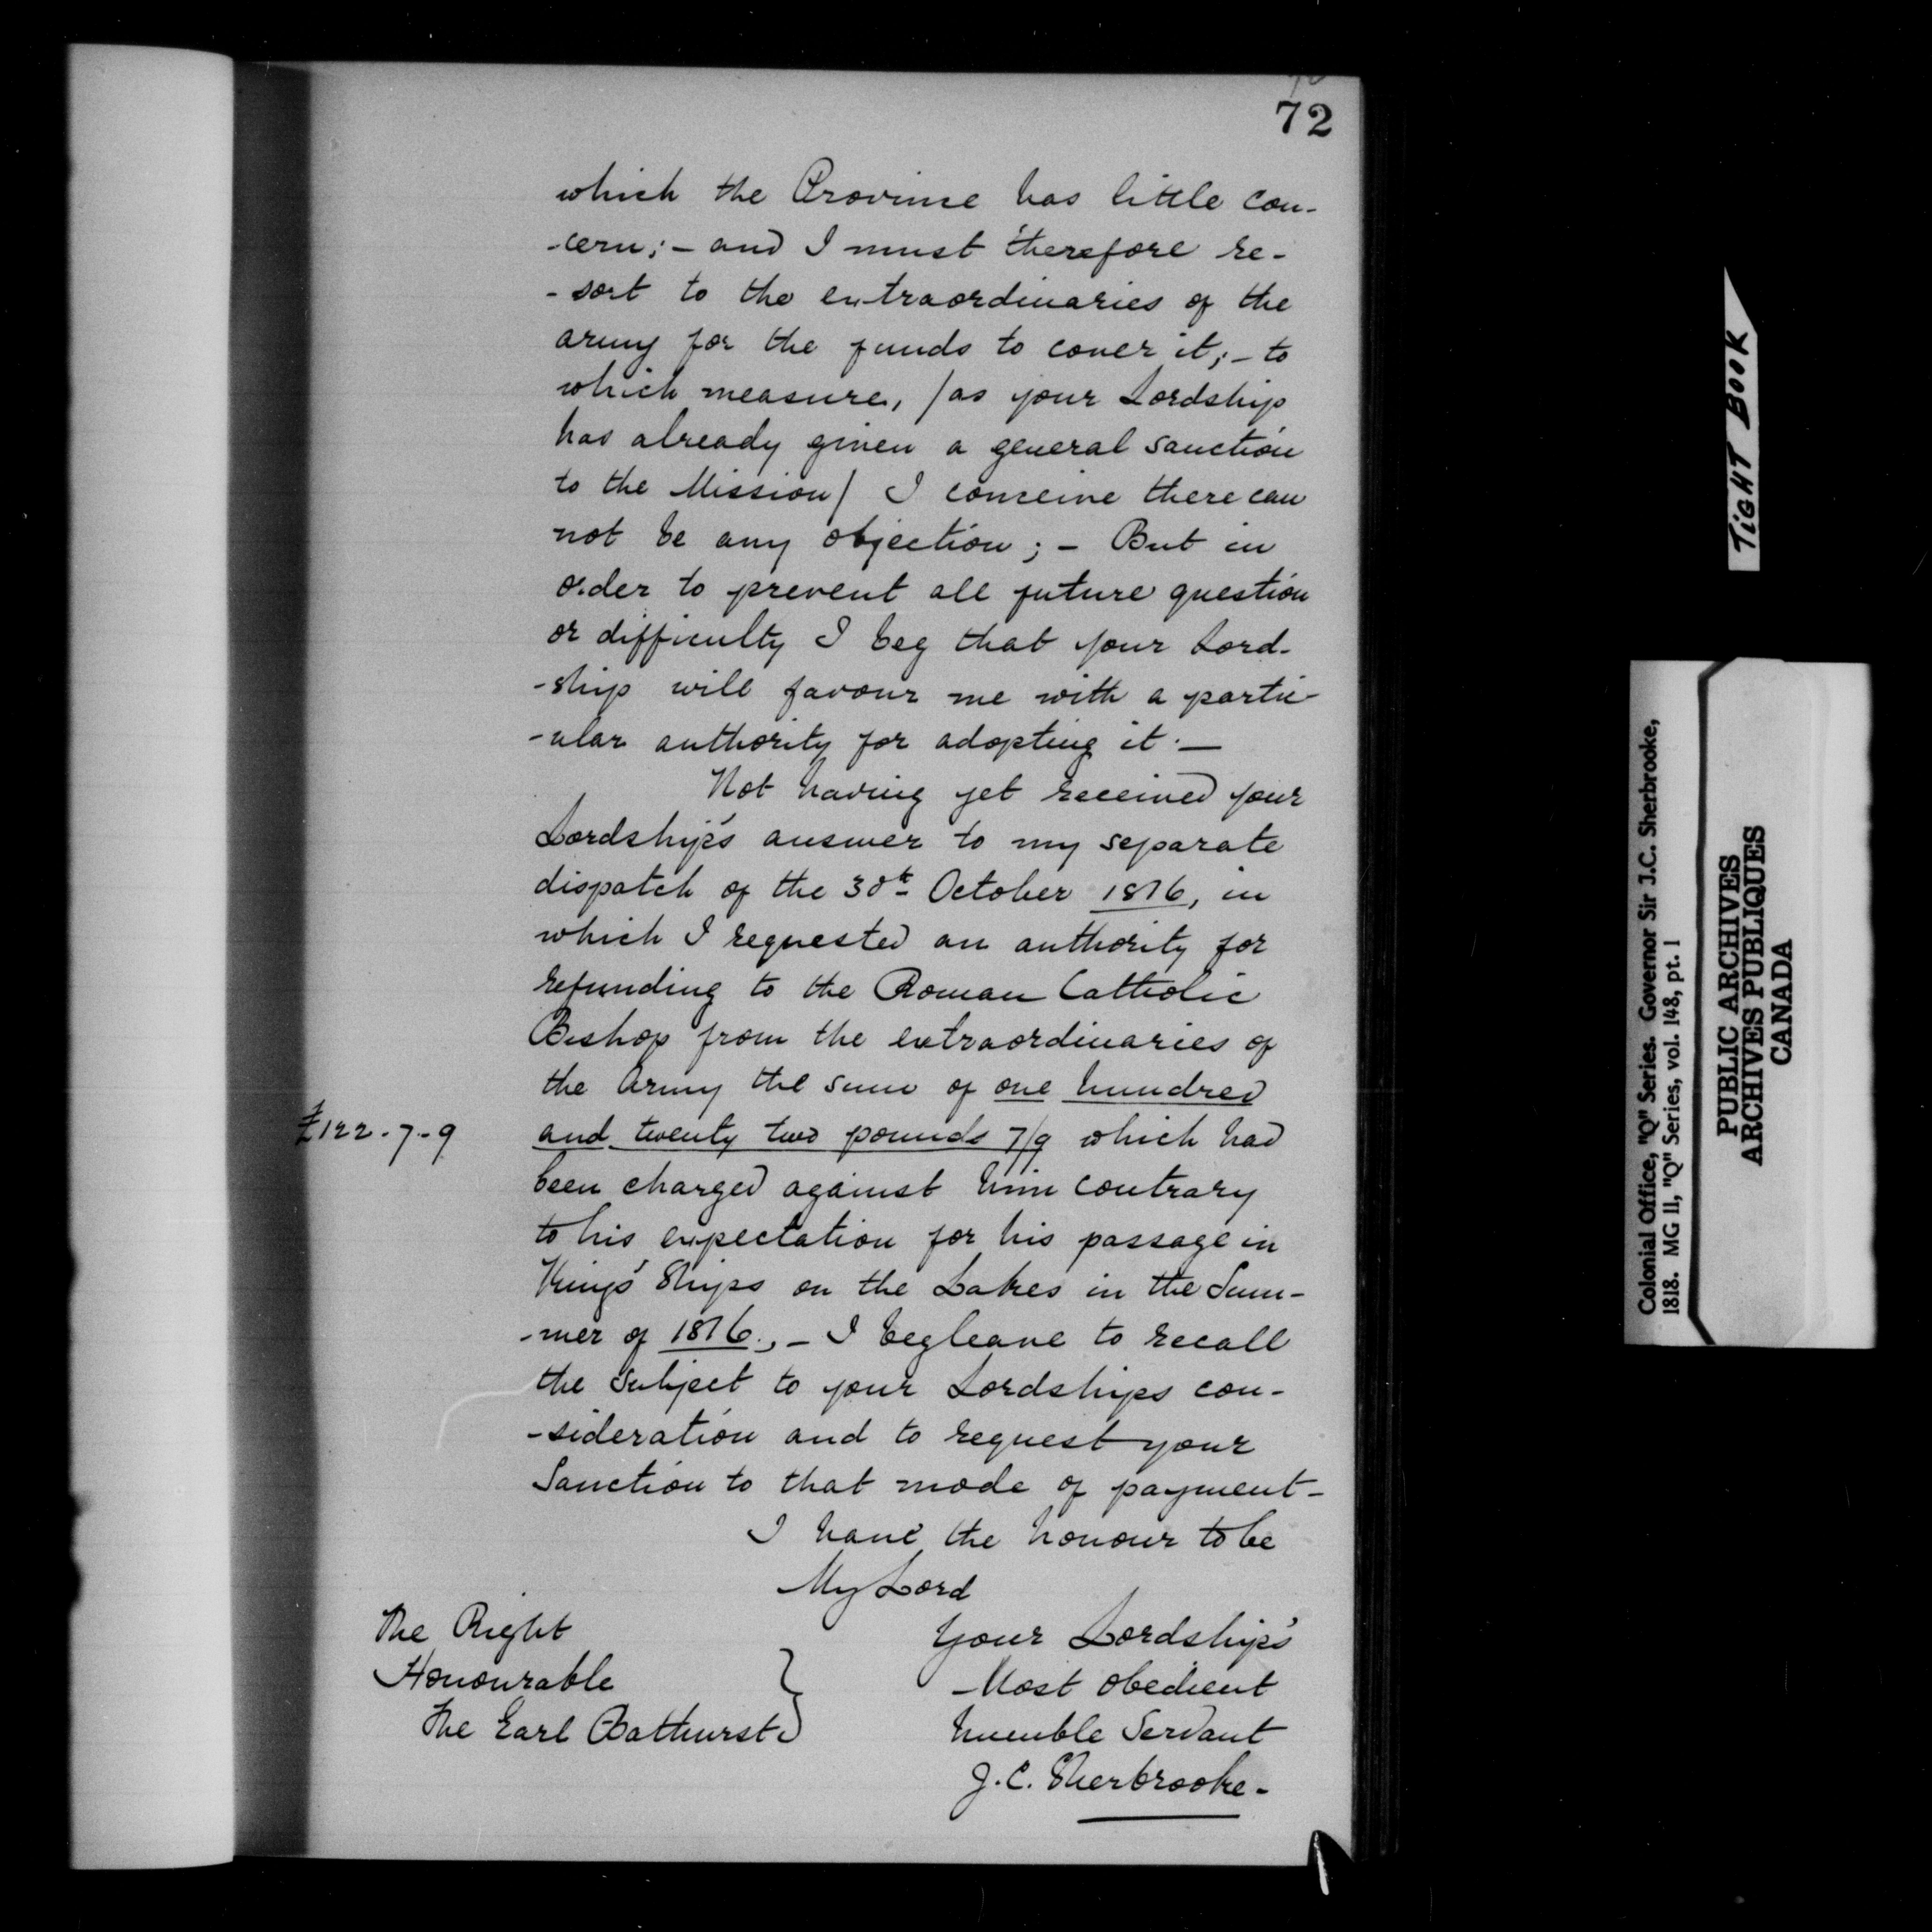 72
which the Province has little con-
-cern; - and I must therefore re-
- sort to the extraordinaries of the
army for the funds to cover it; - to
which measure, / as your Lordship
has already given a general sanction
to the Mission / I conceive there can
not be any objection; - But in
order to prevent all future question
or difficulty I beg that your Lord-
-ship will favour me with a partic-
-ular authority for adopting it. —
Not having yet received your
Lordship's answer to my separate
dispatch of the 30th October 1816, in
which I requested an authority for
refunding to the Roman Catholic
Bishop from the extraordinaries of
the Army the sum of one hundred
£122-7-9 and twenty two pounds 7/9 which had
been charged against him contrary
to his expectation for his passage in
King's Ships on the Lakes in the Sum-
-mer of 1816., - I beg leave to recall
the subject to your Lordships con-
-sideration and to request your
Sanction to that mode of payment -
I have the honour to be
My Lord
Your Lordship's
Most obedient
humble Servant
J. C. Sherbrooke -
The Right
Honourable
The Earl Bathurst
TIGHT BOOK
Colonial Office, "Q" Series. Governor Sir J.C. Sherbrooke,
1818. MG 11, "Q" Series, vol. 148, pt. 1
PUBLIC ARCHIVES
ARCHIVES PUBLIQUES
CANADA